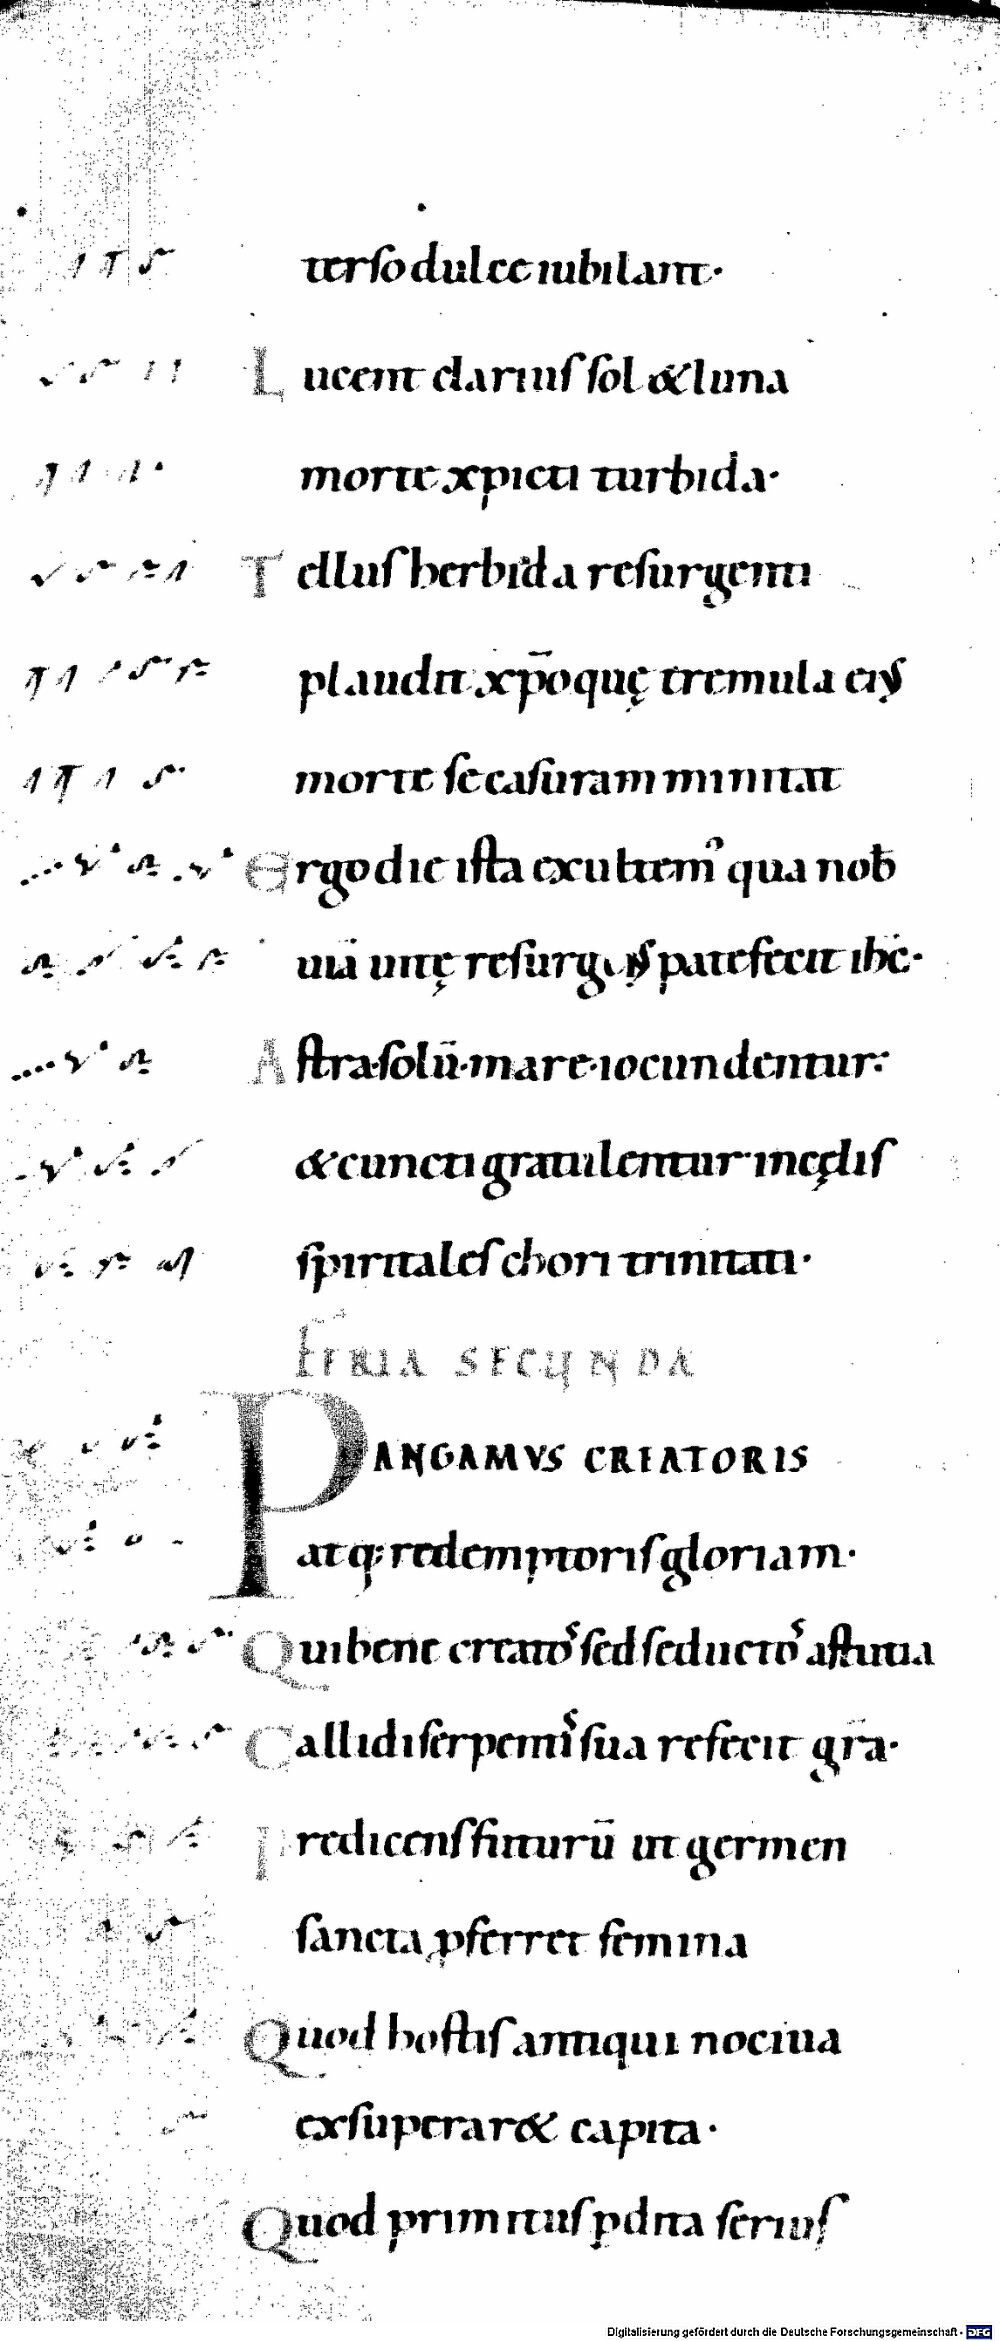 terso dulce iubilant·
Lucent clarius sol & luna
morte xpicti turbida·
Tellus herbida resurgenti
plaudit xp̄oquę tremula ei9
morte se casuram minitat
Ergo die ista exultem9 qua nob̄
uiā uitę resurgens patefecit ihc̄·
Astra·solū·mare·iocundentur·
& cuncti gratulentur in cęlis
spiritales chori trinitati·
FERIA SECUNDA
PANGAMVS CREATORIS
atq; redemptoris gloriam·
Qui bene creatos sed seductos astutia
Callidi serpentis sua refecit gr̄a·
Predicens futurū ut germen
sancta ꝓferret femina
Quod hostis antiqui nociua
exsuperar& capita·
Quod primitus ꝑdita seri9
Digitalisierung gefördert durch die Deutsche Forschungsgemeinschaft - DFG